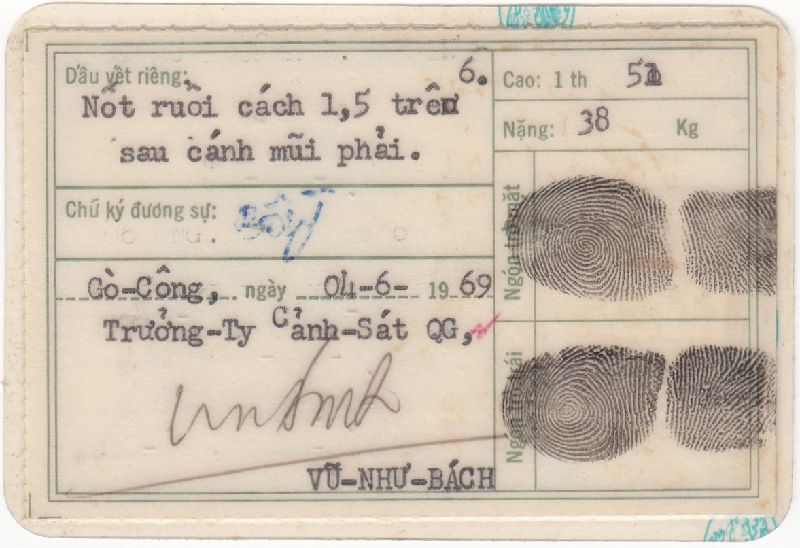 Dấu vết riêng: 6.
Nốt ruồi cách 1,5 trên
sau cánh mũi phải.
Cao: 1 th 51
Nặng: 38 Kg
Chữ ký đương sự:
Gò-Công, ngày 04-6- 1969
Trưởng-Ty Cảnh-Sát QG,
VŨ-NHƯ-BÁCH
Ngón trỏ mặt
Ngón trỏ trái